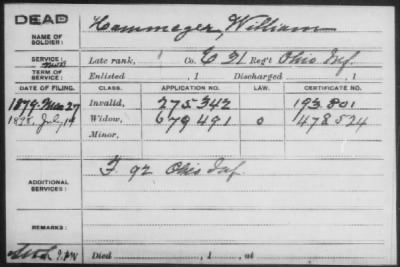 DEAD
NAME OF SOLDIER: Hammeyer, William
SERVICE: Late rank, Co. E 21 Reg't Ohio Inf.
TERM OF SERVICE: Enlisted , 1 Discharged , 1
DATE OF FILING. CLASS. APPLICATION NO. LAW. CERTIFICATE NO.
1879. Mar 27 Invalid, 275342 193.801
July 14 Widow, 679491 0 478524
Minor,
ADDITIONAL SERVICES: F 92 Ohio Inf
REMARKS:
Died , 1 , at